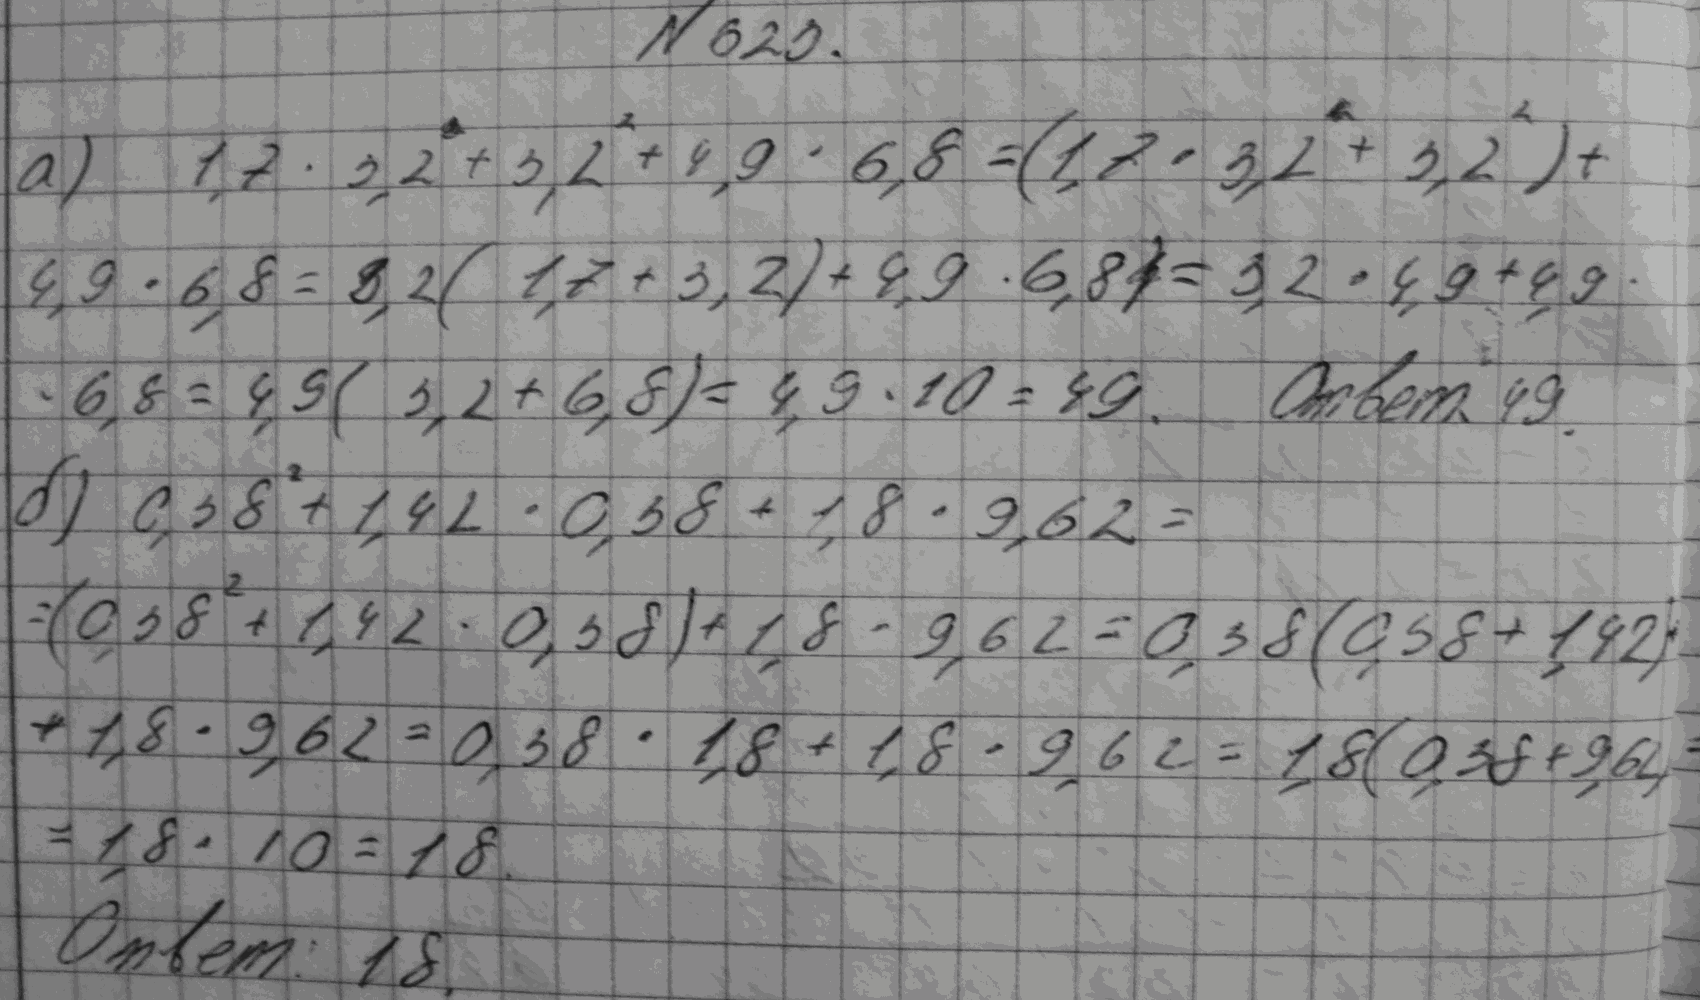 № 623.
а) 1,7 · 3,2 + 3,2² + 4,9 · 6,8 = (1,7 · 3,2 + 3,2²) +
4,9 · 6,8 = 3,2( 1,7 + 3,2) + 4,9 · 6,8 = 3,2 · 4,9 + 4,9 ·
· 6,8 = 4,9( 3,2 + 6,8) = 4,9 · 10 = 49. Ответ: 49.
б) 0,38² + 1,42 · 0,38 + 1,8 · 9,62 =
=(0,38² + 1,42 · 0,38) + 1,8 · 9,62 = 0,38(0,38 + 1,42)+
+ 1,8 · 9,62 = 0,38 · 1,8 + 1,8 · 9,62 = 1,8(0,38+9,62) =
= 1,8 · 10 = 18.
Ответ: 18.